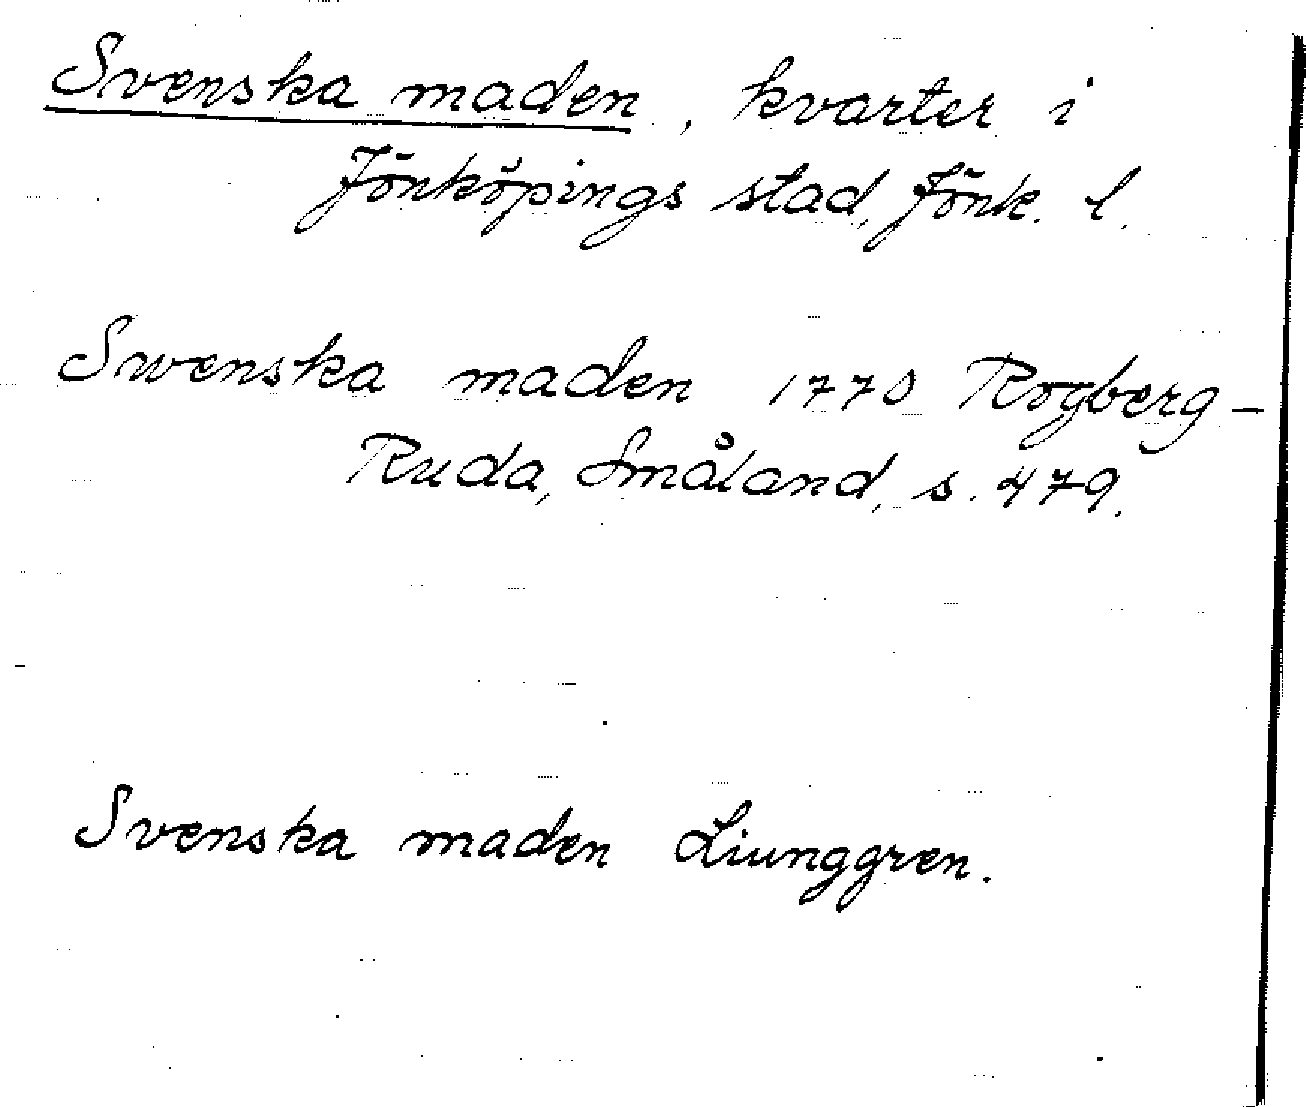 Svenska maden, kvarter i
Jönköpings stad, Jönk. l.
Swenska maden 1770 Rogberg-
Ruda, Småland, s. 479.
Svenska maden Liunggren.